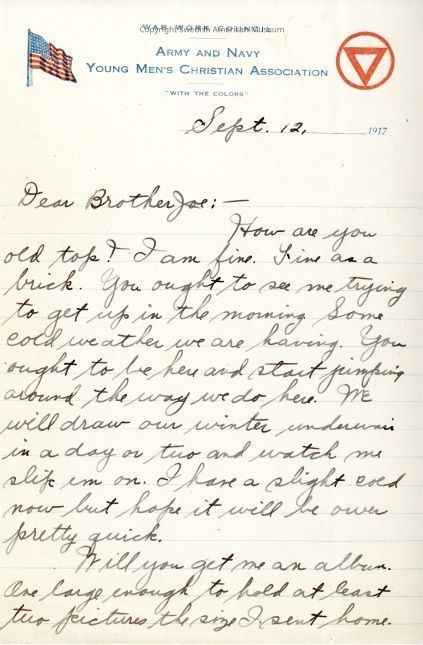 WAR WORK COUNCIL
Copyright Swedish American Museum
ARMY AND NAVY
YOUNG MEN'S CHRISTIAN ASSOCIATION
"WITH THE COLORS"
Sept. 12, 1917
Dear Brother Joe:—
How are you
old top? I am fine. Fine as a
brick. You ought to see me trying
to get up in the morning Some
cold weather we are having. You
ought to be here and start jumping
around the way we do here. We
will draw our winter underwair
in a day or two and watch me
slip em on. I have a slight cold
now but hope it will be over
pretty quick.
Will you get me an album.
One large enough to hold at least
two pictures the size I sent home.